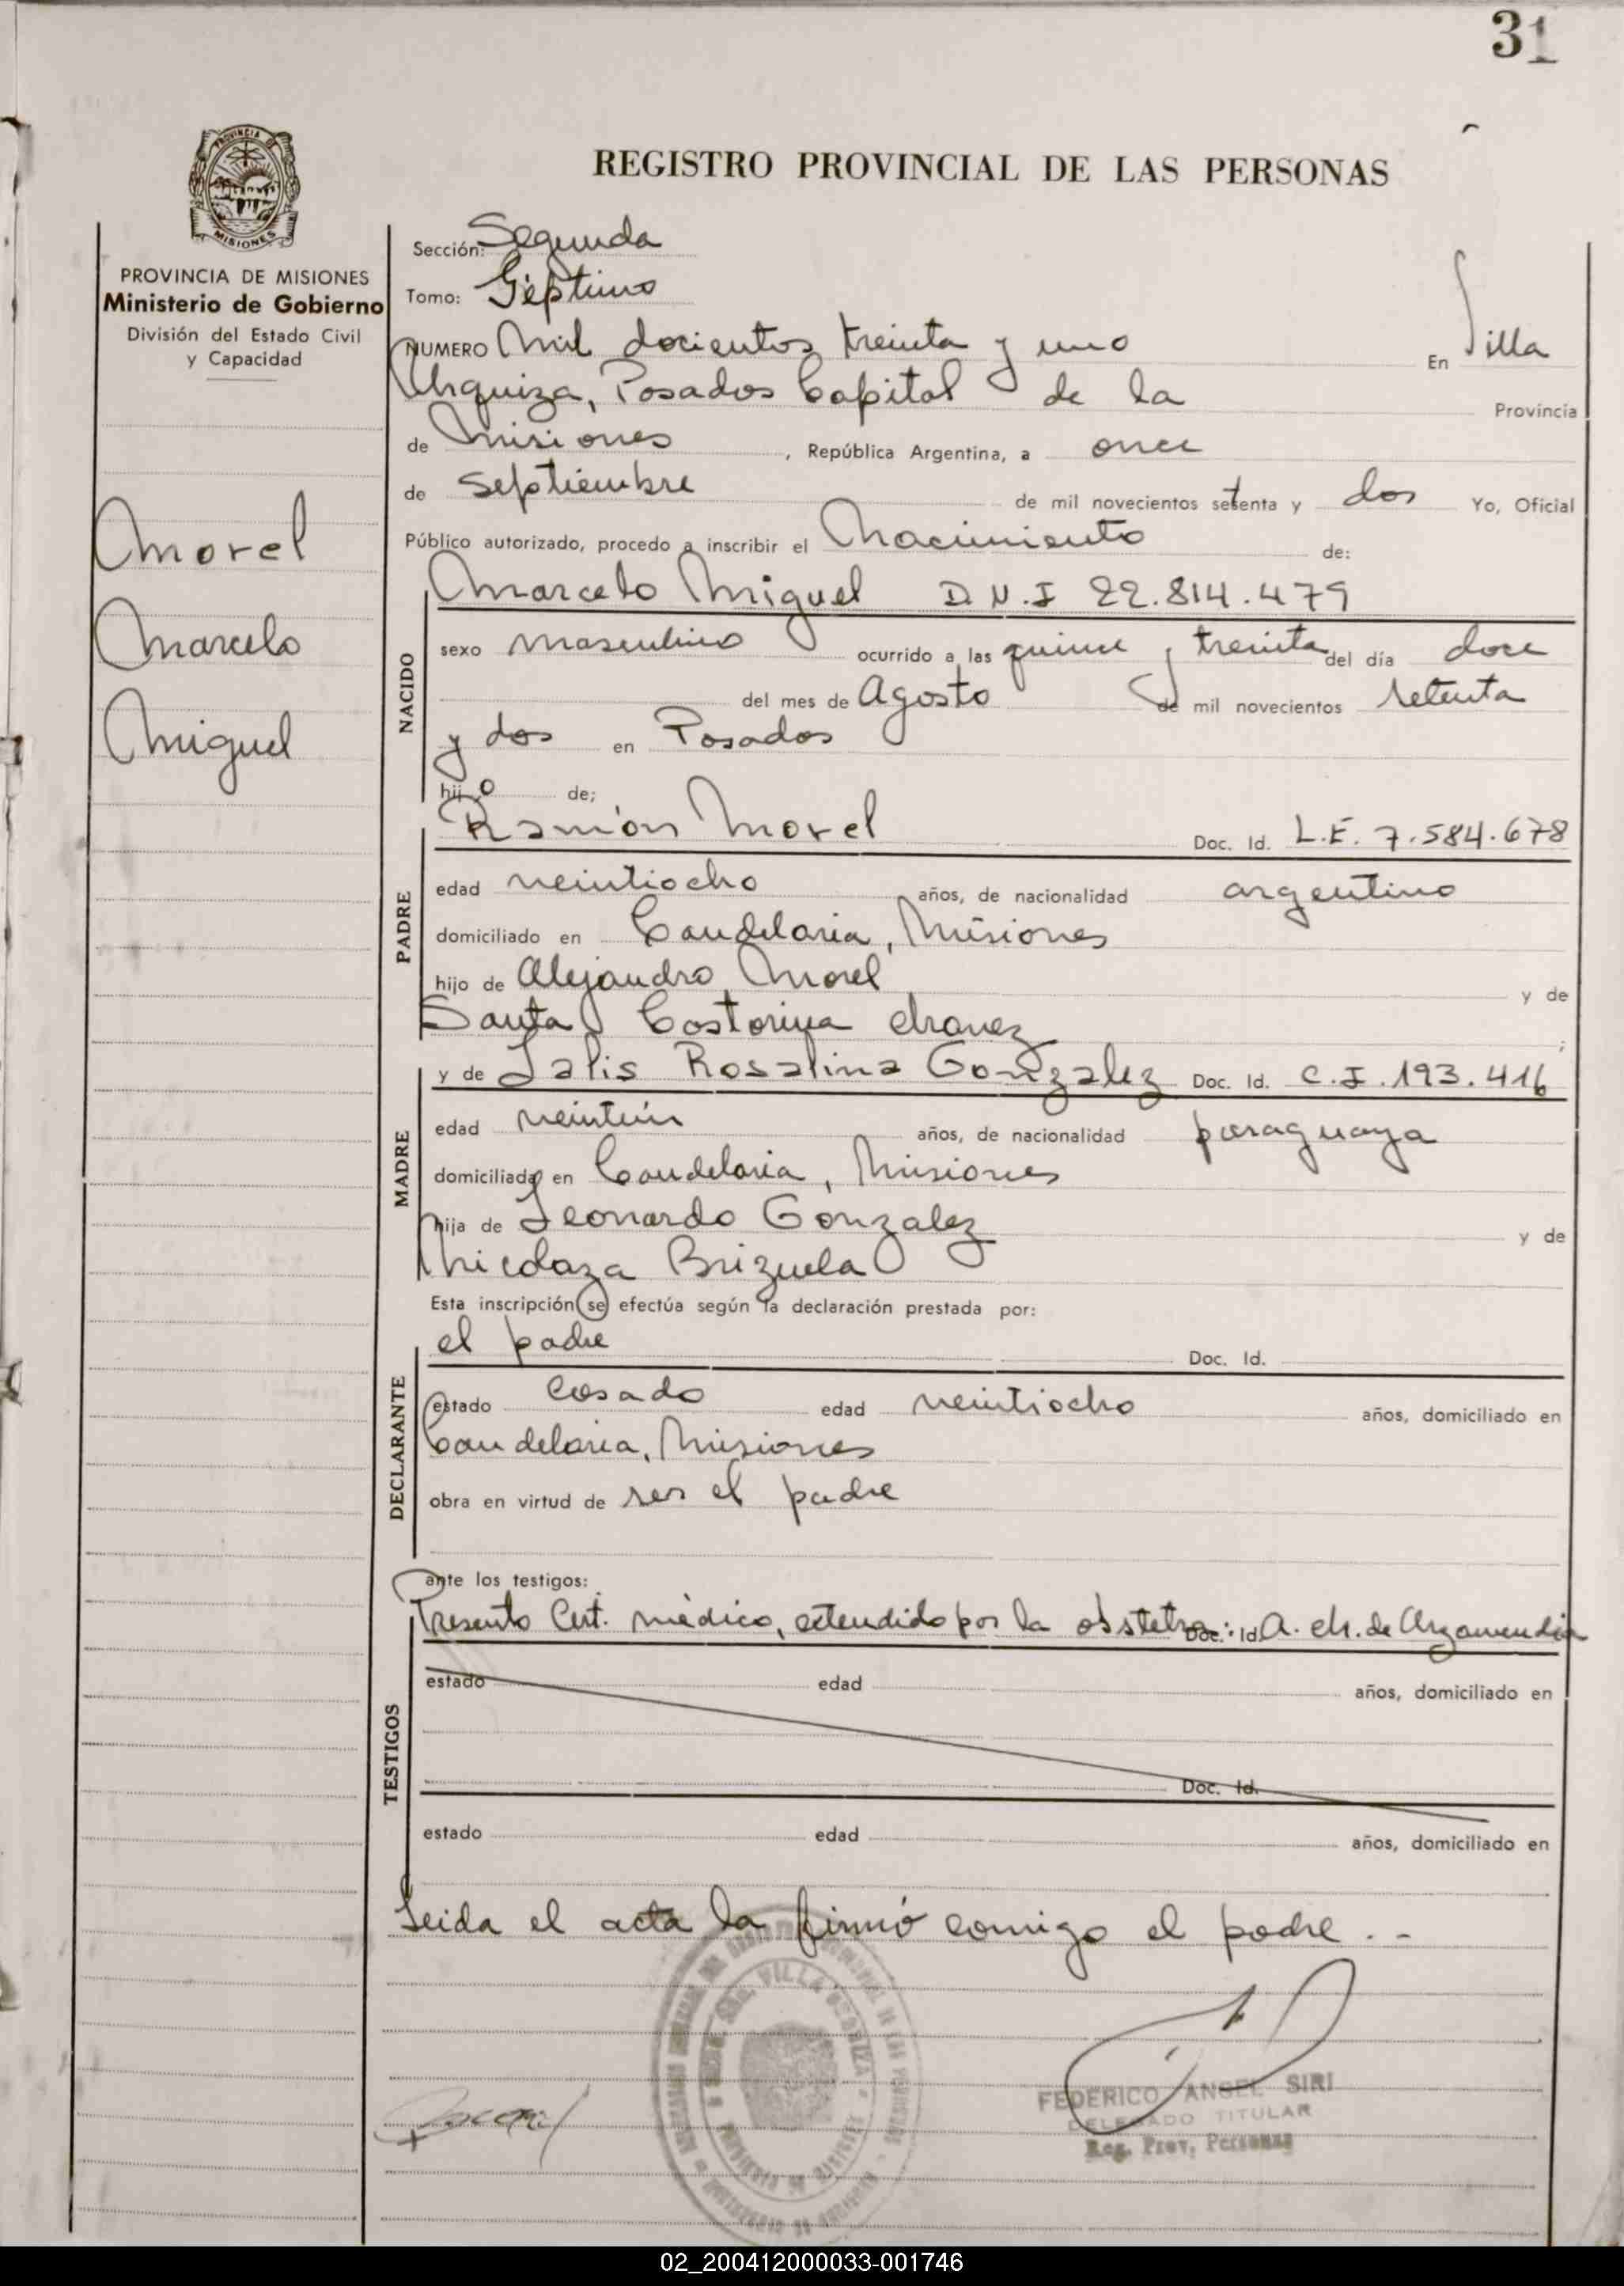 31
PROVINCIA DE
MISIONES
REGISTRO PROVINCIAL DE LAS PERSONAS
PROVINCIA DE MISIONES
Ministerio de Gobierno
División del Estado Civil
y Capacidad
Morel
Marcelo
Miguel
Sección: Segunda
Tomo: Séptimo
NUMERO Mil docientos treinta y uno En Villa
Urquiza, Posadas Capital de la Provincia
de Misiones, República Argentina, a once
de Septiembre de mil novecientos setenta y dos Yo, Oficial
Público autorizado, procedo a inscribir el Nacimiento de:
NACIDO
Marcelo Miguel D.N.I 22.814.479
sexo masculino ocurrido a las quince y treinta del día doce
del mes de Agosto de mil novecientos setenta
y dos en Posadas
hijo de;
PADRE
Ramón Morel Doc. Id. L.E. 7.584.678
edad veintiocho años, de nacionalidad argentino
domiciliado en Candelaria, Misiones
hijo de Alejandro Morel y de
Santa Castorina chavez ;
MADRE
y de Lalis Rosalina Gonzalez Doc. Id. C.I. 193.416
edad veintiún años, de nacionalidad paraguaya
domiciliada en Candelaria, Misiones
hija de Leonardo Gonzalez y de
Nicolaza Brizuela
Esta inscripción se efectúa según la declaración prestada por:
DECLARANTE
el padre Doc. Id.
estado casado edad veintiocho años, domiciliado en
Candelaria, Misiones
obra en virtud de ser el padre
ante los testigos:
TESTIGOS
Presento Cert. médico, extendido por la obstetra: Doc. Id. A. ch. de Argamendia
estado edad años, domiciliado en
Doc. Id.
estado edad años, domiciliado en
Leida el acta la firmó comigo el padre . -
VILLA URQUIZA
FEDERICO ANGEL SIRI
DELEGADO TITULAR
Reg. Prov. Personas
02_200412000033-001746